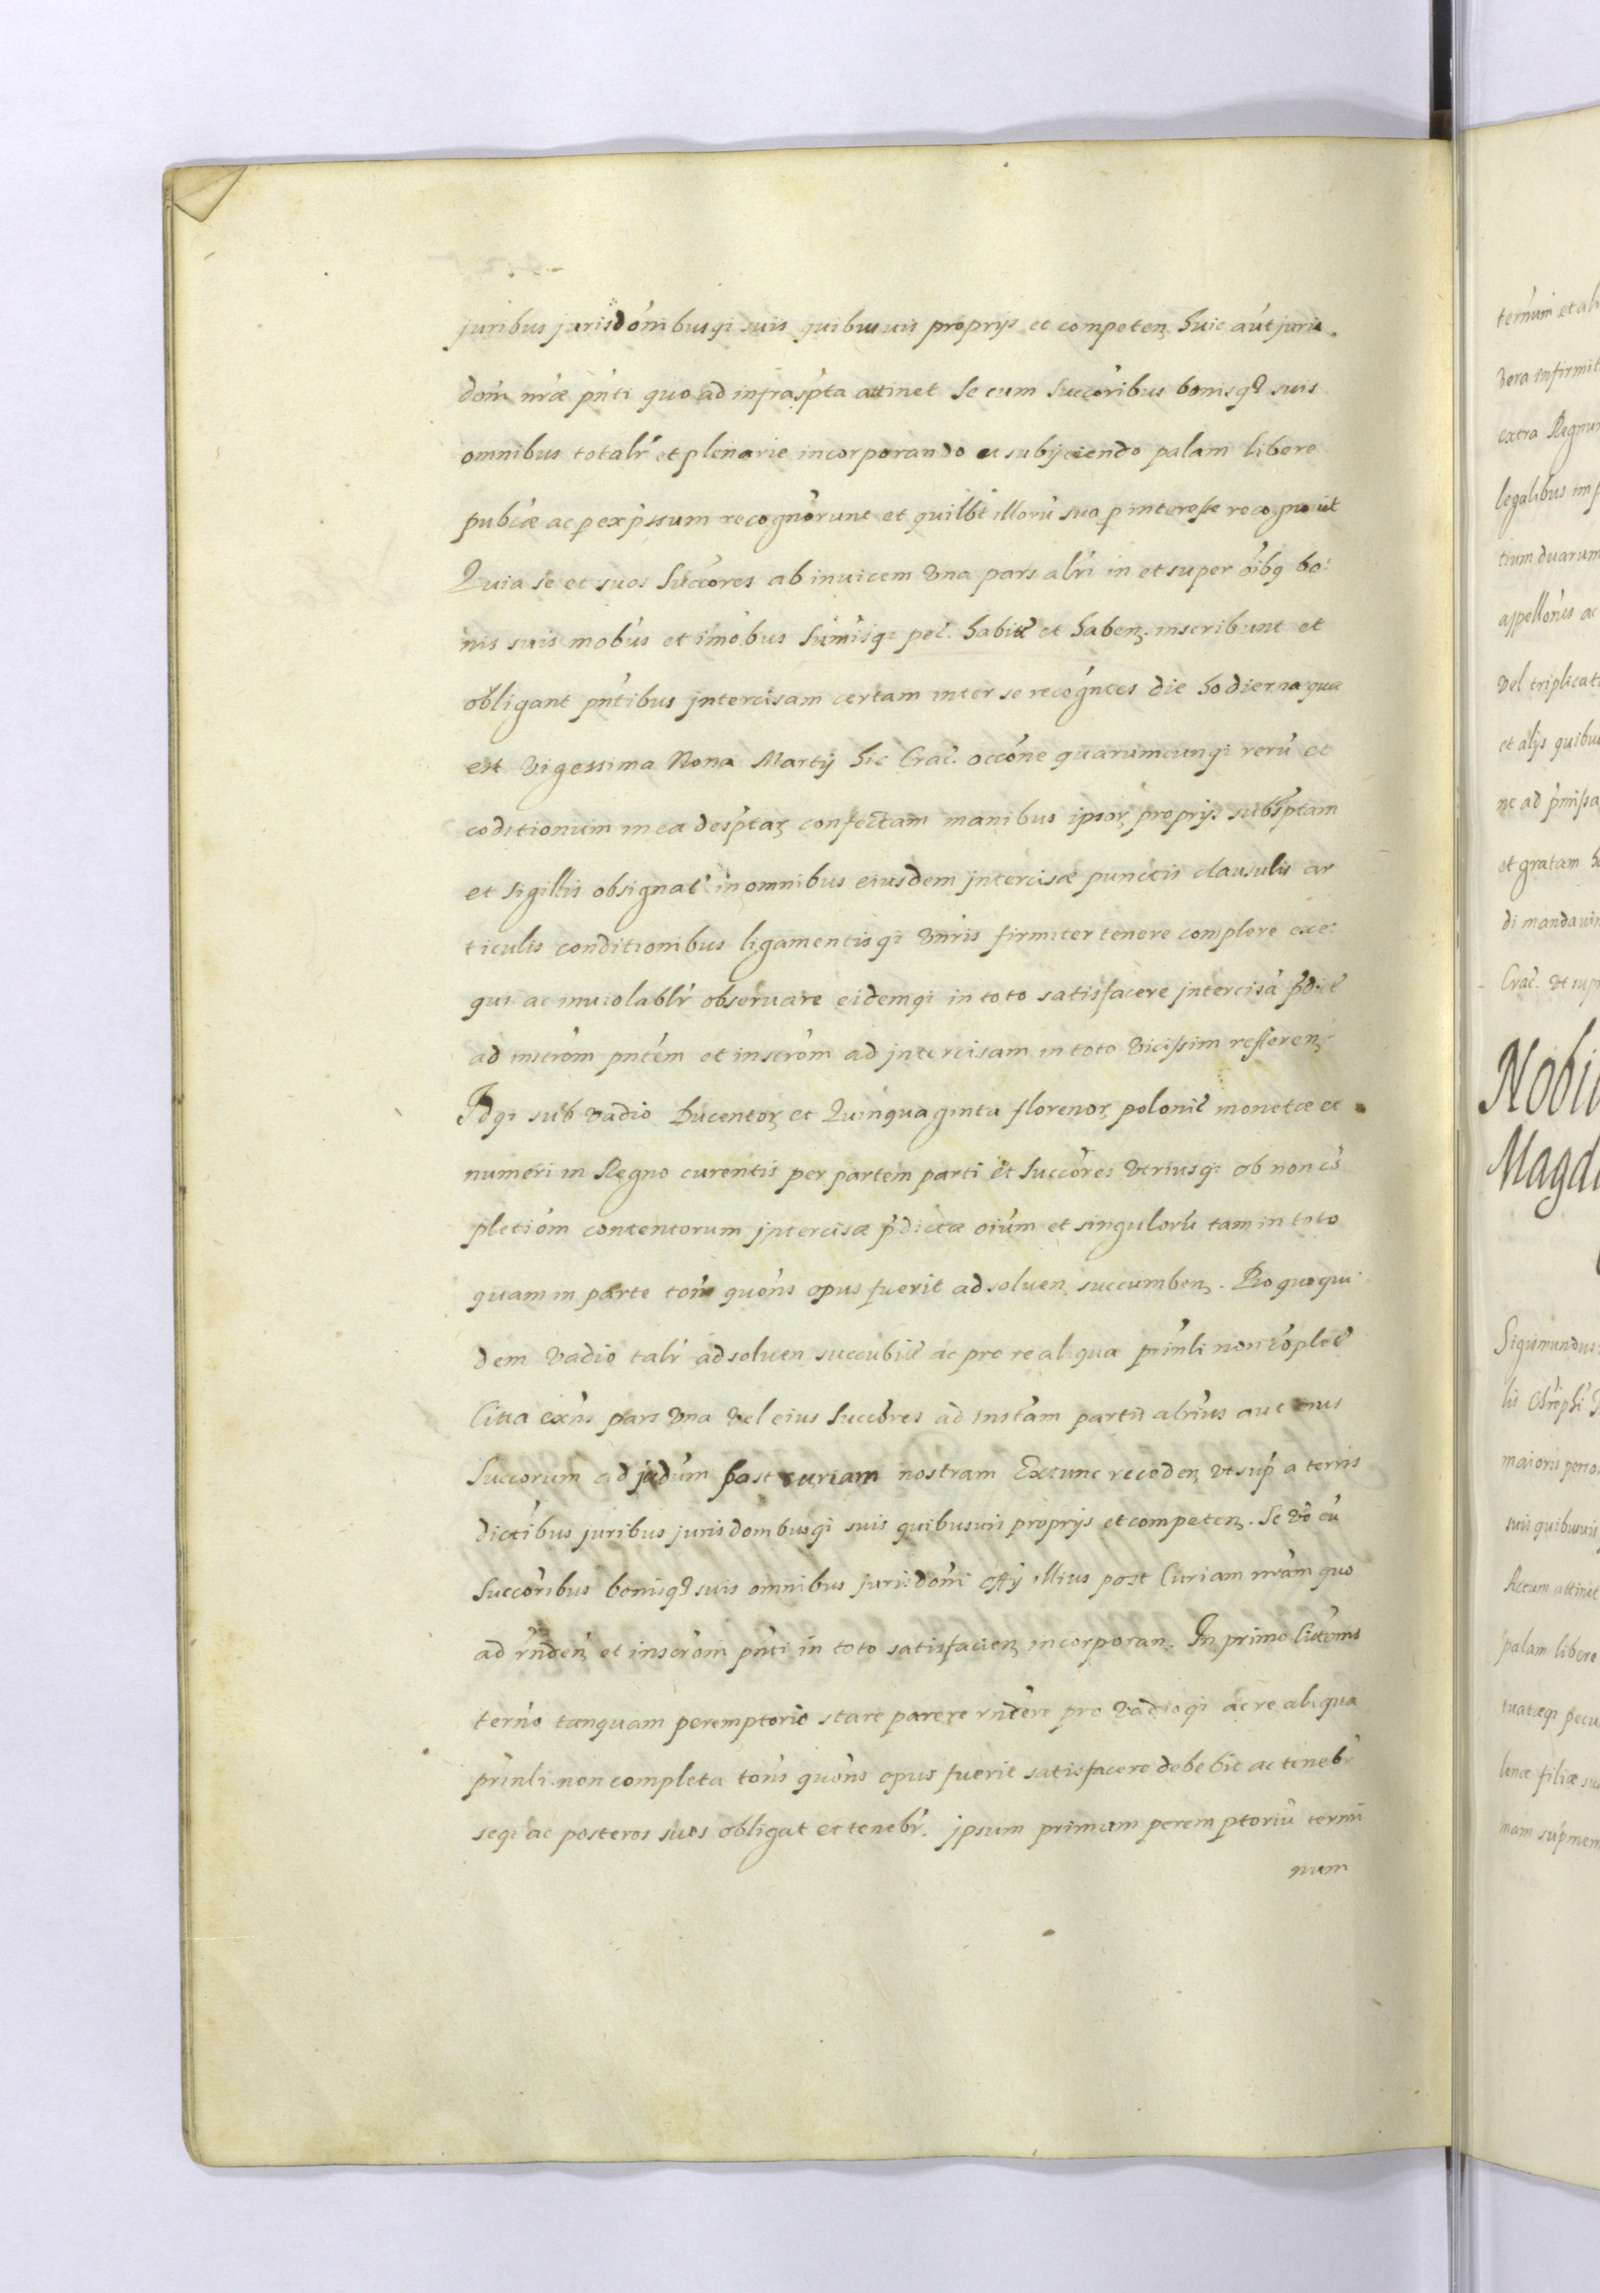 juribus jurisdónibusqȝ suis quibusuis proprijs et competenȝ huic aút juris
dóni nrǽ pńti quo ad infrasṕta attinet Se cum Succóribus bonisqȝ suis
omnibus totalŕ et plenarie incorporando et subijciendo palam libere
publcæ ac p exṕssum recognórunt et quilibt illorú sua p interesse recognouit
Quia se et suos Succóres ab inuicem Vna pars alŕi in et super óibqȝ bo:
nis suis móbus et imóbus Súmisqȝ peć. habit́ et habenȝ. inscribunt et
obligant pńtibus jntercisam certam inter se recógntes die hodierna quæ
est Vigessima Nona Martij hic Crać. occóne quarumcunqȝ rerú et
coditionum in ea desṕtaȝ confectam manibus ipsorȝ proprijs subsṕtam
et Sigillis obsignat́ in omnibus eiusdem jntercisæ punctis clausulis ar
ticulis conditionibus ligamentisqȝ Vńris firmiter tenere complere exe:
qui ac inuiolablŕ obseruare eidemqȝ in toto satisfacere jntercisá ṕdict́
ad inscróm pntém et inscróm ad jntercisam in toto Vicissim referenȝ
Idqȝ sub Vadio Ducentorȝ et Quinquaginta florenorȝ polonić monetæ et
numeri in Regno curentis per partem parti et Succóres Vtriusqȝ ob non có
pletióm contentorum jntercisæ ṕdictæ oiúm et singulorú tam in toto
quam in parte tońs quońs opus fuerit ad soluenȝ succumbenȝ. Pro quo qui
dem Vadio talŕ ad soluen succubit́ ac pro re aliqua prinĺi non cóplet́
Citta exńs pars Vna Vel eius Succóres ad instám partis alŕius aut eius
Succorum ad judúm post curiam nostram Extunc recedenȝ Vt suṕ a terris
dictíbus juribus jurisdombusqȝ suis quibusuis proprijs et competenȝ. Se Vó cú
Succóribus bonisqȝ suis omnibus jurisdóni offij illius post Curiam nrám quo
ad rńdenȝ et inscróm pńti in toto satisfacienȝ incorporanȝ. In primo Citónis
terńo tanquam peremptorio stare parere rńdére pro Vadioqȝ ac re aliqua
prinĺi non completa tońs quońs opus fuerit satisfacere debebit ac tenebŕ
seqȝ ac posteros suos obligat et tenebŕ. jpsum primum peremptoriú termi
num
ternum et ali
extra Regnum
tium duarum
Vel triplicati
et alijs quibus
et gratam
di mandauim
Crać. Vt supr
Nobi
Magda
Sigismundus
maioris perso
suis quibusuis
Actum attinet
palam libere